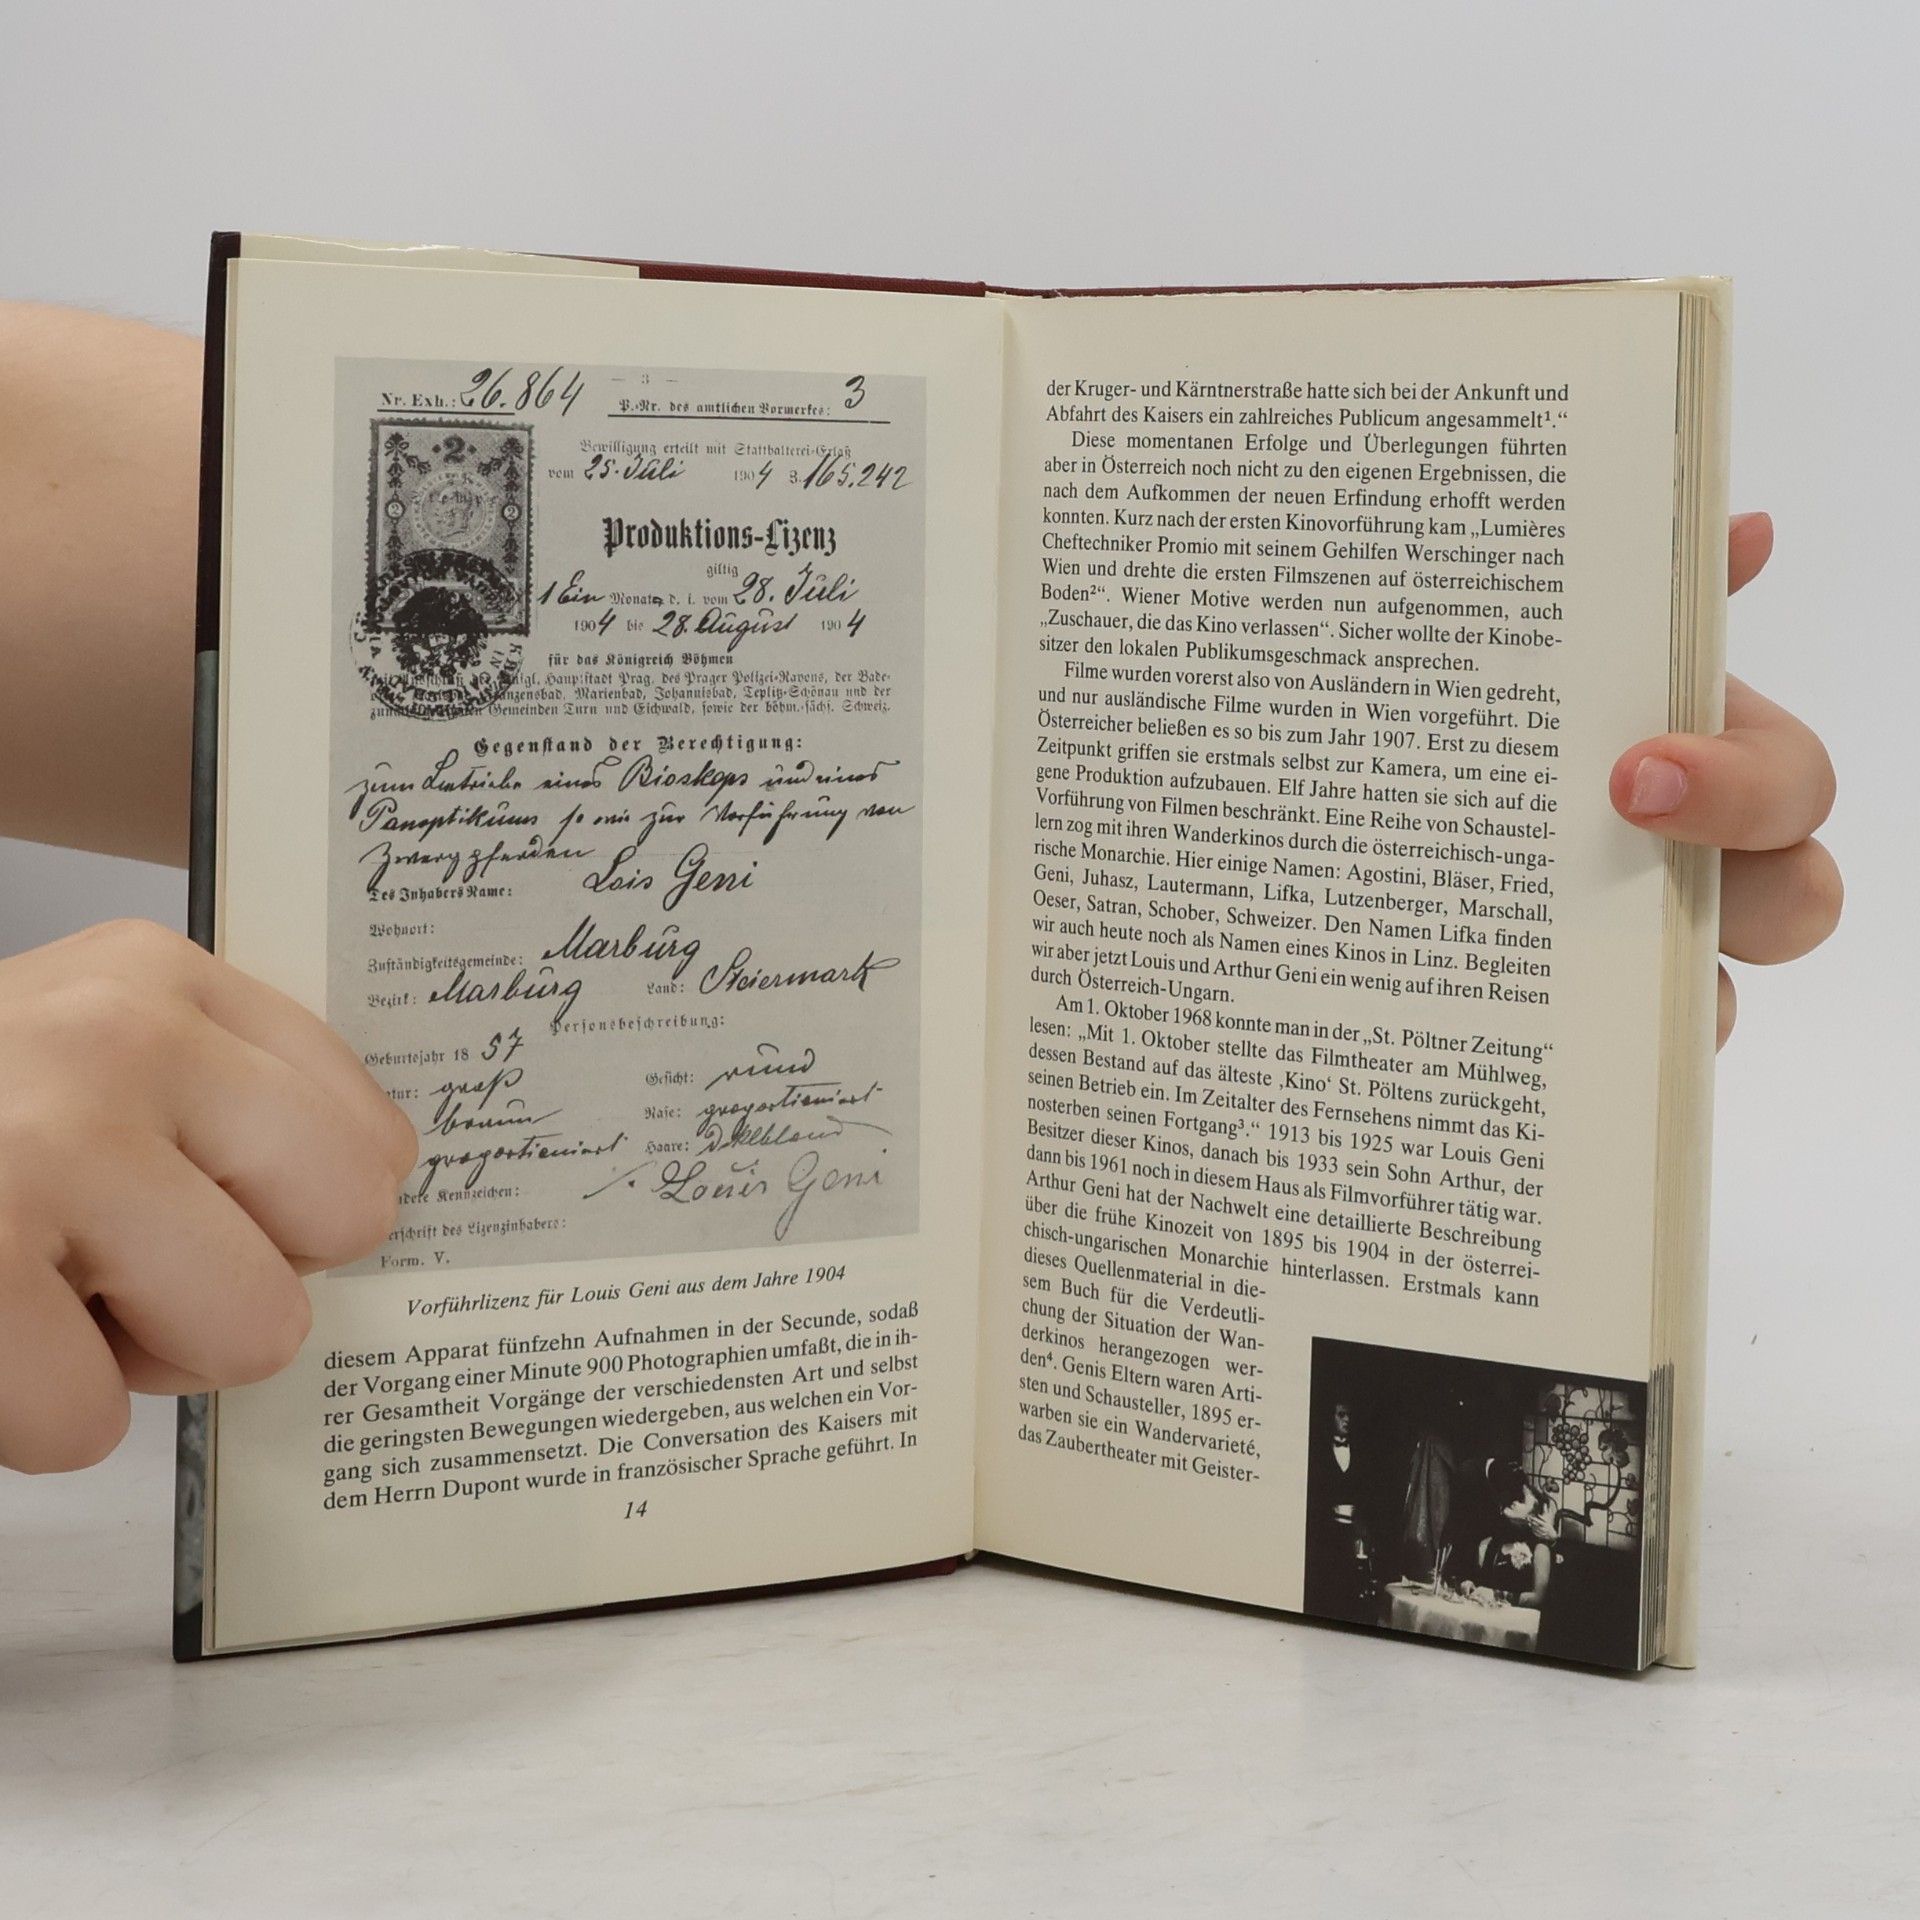 — 3 —
Nr. Exh.: 26.864
P.-Nr. des amtlichen Vormerkes: 3
Bewilligung erteilt mit Statthalterei-Erlaß
vom 25. Juli 1904 Z. 165.242
2
2 2
Produktions-Lizenz
giltig
1 Ein Monate d. i. vom 28. Juli
1904 bis 28. August 1904
für das Königreich Böhmen
königl. Hauptstadt Prag, des Prager Polizei-Rayons, der Bade-
Franzensbad, Marienbad, Johannisbad, Teplitz-Schönau und der
Gemeinden Turn und Eichwald, sowie der böhm.-sächs. Schweiz.
Gegenstand der Berechtigung:
zum Betriebe eines Bioskops und eines
Panoptikums so wie zur Vorführung von
Zwergpferden
Des Inhabers Name: Lois Geni
Wohnort:
Zuständigkeitsgemeinde: Marburg
Bezirk: Marburg Land: Steiermark
Personsbeschreibung:
Geburtsjahr 1857
groß Gesicht: rund
braun Nase: proportioniert
proportioniert Haare: Dklblond
Kennzeichen: Louis Geni
des Lizenzinhabers:
Form. V.
Vorführlizenz für Louis Geni aus dem Jahre 1904
diesem Apparat fünfzehn Aufnahmen in der Secunde, sodaß
der Vorgang einer Minute 900 Photographien umfaßt, die in ih-
rer Gesamtheit Vorgänge der verschiedensten Art und selbst
die geringsten Bewegungen wiedergeben, aus welchen ein Vor-
gang sich zusammensetzt. Die Conversation des Kaisers mit
dem Herrn Dupont wurde in französischer Sprache geführt. In
14
der Kruger- und Kärntnerstraße hatte sich bei der Ankunft und
Abfahrt des Kaisers ein zahlreiches Publicum angesammelt¹.“
Diese momentanen Erfolge und Überlegungen führten
aber in Österreich noch nicht zu den eigenen Ergebnissen, die
nach dem Aufkommen der neuen Erfindung erhofft werden
konnten. Kurz nach der ersten Kinovorführung kam „Lumières
Cheftechniker Promio mit seinem Gehilfen Werschinger nach
Wien und drehte die ersten Filmszenen auf österreichischem
Boden²“. Wiener Motive werden nun aufgenommen, auch
„Zuschauer, die das Kino verlassen“. Sicher wollte der Kinobe-
sitzer den lokalen Publikumsgeschmack ansprechen.
Filme wurden vorerst also von Ausländern in Wien gedreht,
und nur ausländische Filme wurden in Wien vorgeführt. Die
Österreicher beließen es so bis zum Jahr 1907. Erst zu diesem
Zeitpunkt griffen sie erstmals selbst zur Kamera, um eine ei-
gene Produktion aufzubauen. Elf Jahre hatten sie sich auf die
Vorführung von Filmen beschränkt. Eine Reihe von Schaustel-
lern zog mit ihren Wanderkinos durch die österreichisch-unga-
rische Monarchie. Hier einige Namen: Agostini, Bläser, Fried,
Geni, Juhasz, Lautermann, Lifka, Lutzenberger, Marschall,
Oeser, Satran, Schober, Schweizer. Den Namen Lifka finden
wir auch heute noch als Namen eines Kinos in Linz. Begleiten
wir aber jetzt Louis und Arthur Geni ein wenig auf ihren Reisen
durch Österreich-Ungarn.
Am 1. Oktober 1968 konnte man in der „St. Pöltner Zeitung“
lesen: „Mit 1. Oktober stellte das Filmtheater am Mühlweg,
dessen Bestand auf das älteste ‚Kino‘ St. Pöltens zurückgeht,
seinen Betrieb ein. Im Zeitalter des Fernsehens nimmt das Ki-
nosterben seinen Fortgang³.“ 1913 bis 1925 war Louis Geni
Besitzer dieser Kinos, danach bis 1933 sein Sohn Arthur, der
dann bis 1961 noch in diesem Haus als Filmvorführer tätig war.
Arthur Geni hat der Nachwelt eine detaillierte Beschreibung
über die frühe Kinozeit von 1895 bis 1904 in der österrei-
chisch-ungarischen Monarchie hinterlassen. Erstmals kann
dieses Quellenmaterial in die-
sem Buch für die Verdeutli-
chung der Situation der Wan-
derkinos herangezogen wer-
den⁴. Genis Eltern waren Arti-
sten und Schausteller, 1895 er-
warben sie ein Wandervarieté,
das Zaubertheater mit Geister-